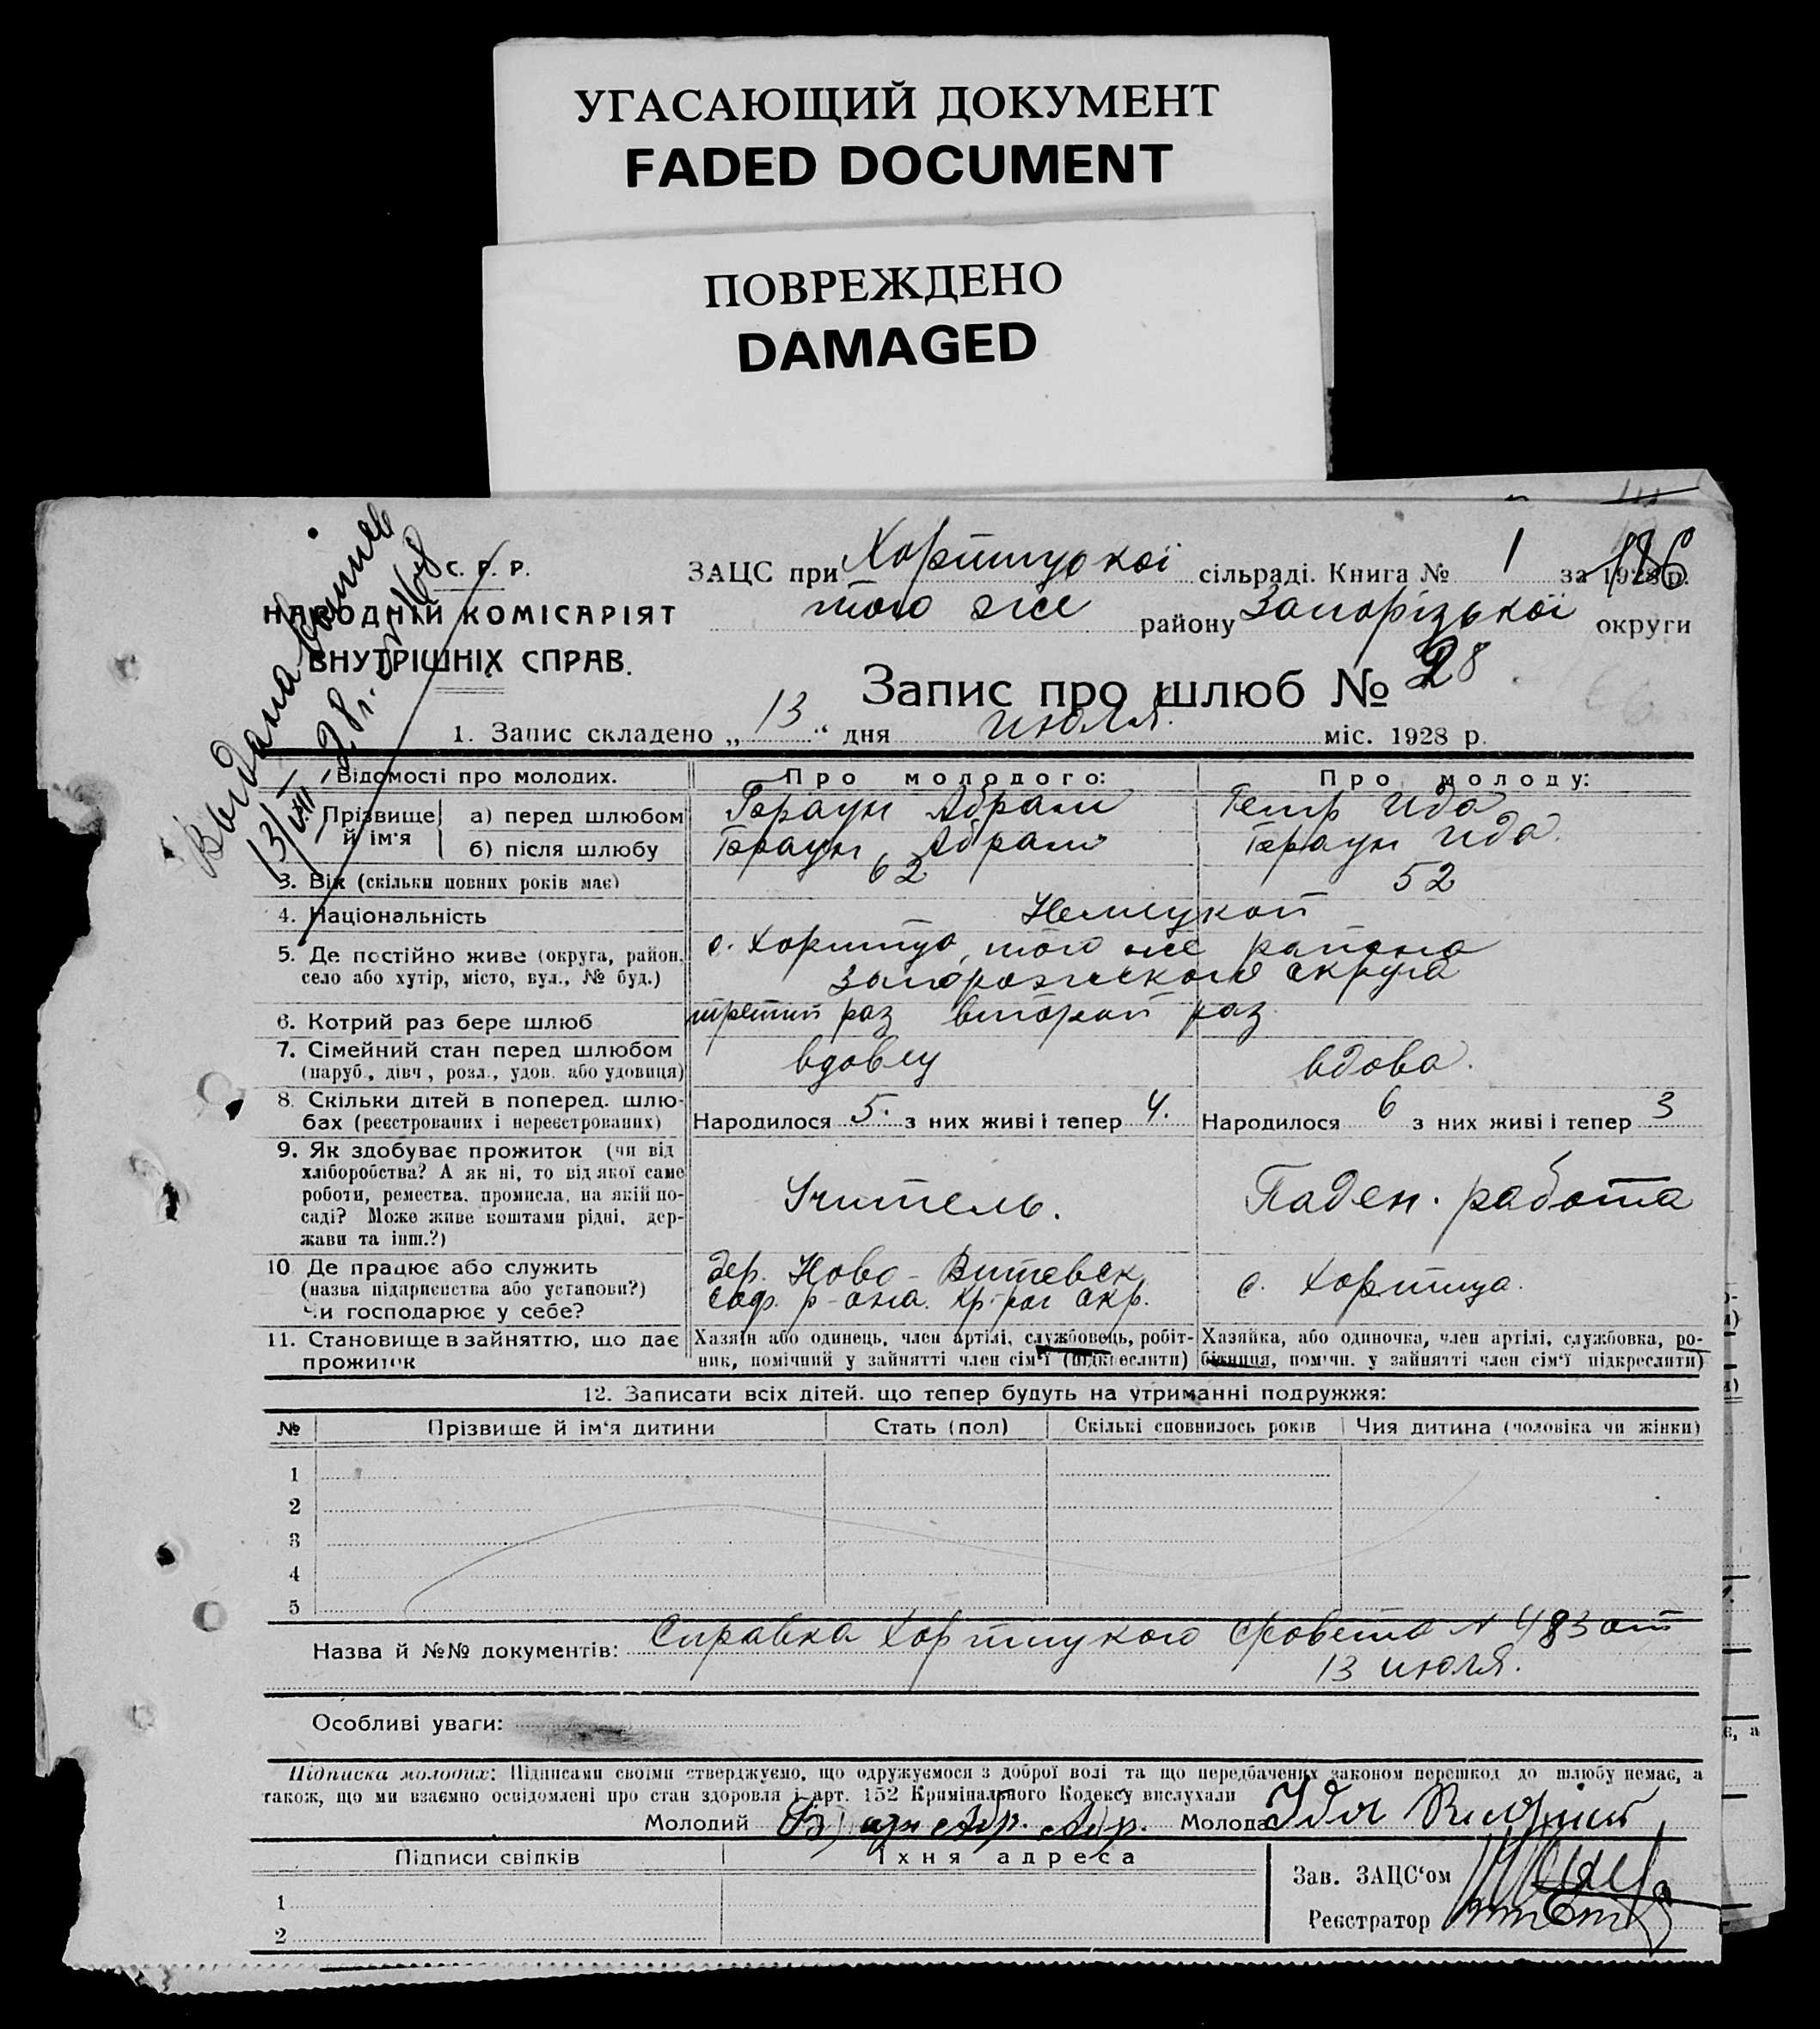 УГАСАЮЩИЙ ДОКУМЕНТ
FADED DOCUMENT
ПОВРЕЖДЕНО
DAMAGED
Выдана
13/VIII 28 г. № 168
С. Р. Р.
НАРОДНІЙ КОМІСАРІЯТ
ВНУТРІШНІХ СПРАВ.
ЗАЦС при Хортицької сільраді. Книга № 1 за 1928 р.
того же району Запорізької округи
Запис про шлюб № 28
1. Запис складено „ 13 “ дня июля міс. 1928 р.
Відомості про молодих. Про молодого: Про молоду:
Прізвище й ім'я а) перед шлюбом Браун Абрам Ида
б) після шлюбу Браун Абрам Браун Ида.
3. Вік (скільки повних років має) 62 52
4. Національність Немецкой
5. Де постійно живе (округа, район, с. Хортица, того же района
село або хутір, місто, вул., № буд.) Запорожского округа
6. Котрий раз бере шлюб третий раз второй раз
7. Сімейний стан перед шлюбом вдовец вдова.
(паруб., дівч., розл., удов. або удовиця)
8. Скільки дітей в поперед. шлю-
бах (реєстрованих і нереєстрованих) Народилося 5. з них живі і тепер 4. Народилося 6 з них живі і тепер 3
9. Як здобуває прожиток (чи від
хліборобства? А як ні, то від якої саме
роботи, ремества, промисла, на якій по- Учитель. Паден. работа
саді? Може живе коштами рідні, дер-
жави та інш.?)
10 Де працює або служить дер. Ново-Витебск,
(назва підприємства або установи?) р-она. Кр-рог окр. с. Хортица.
Чи господарює у себе?
11. Становище в зайняттю, що дає Хазяїн або одинець, член артілі, службовець, робіт- Хазяйка, або одиночка, член артілі, службовка, ро-
прожиток ник, помічний у зайнятті член сім'ї (підкреслити) бітниця, помічн. у зайнятті член сім'ї підкреслити)
12. Записати всіх дітей. що тепер будуть на утриманні подружжя:
№ Прізвище й ім'я дитини Стать (пол) Скількі сповнилось років Чия дитина (чоловіка чи жінки)
1
2
3
4
5
Назва й №№ документів: Справка Хортицкого с/совета № 483 от
13 июля.
Особливі уваги:
Підписка молодих: Підписами своїми стверджуємо, що одружуємося з доброї волі та що передбачених законом перешкод до шлюбу немає, а
також, що ми взаємно освідомлені про стан здоровля і арт. 152 Кримінального Кодексу вислухали
Молодий Браун Абр. Абр. Молода
Підписи свідків Їхня адреса
Зав. ЗАЦС'ом
1
Реєстратор
2